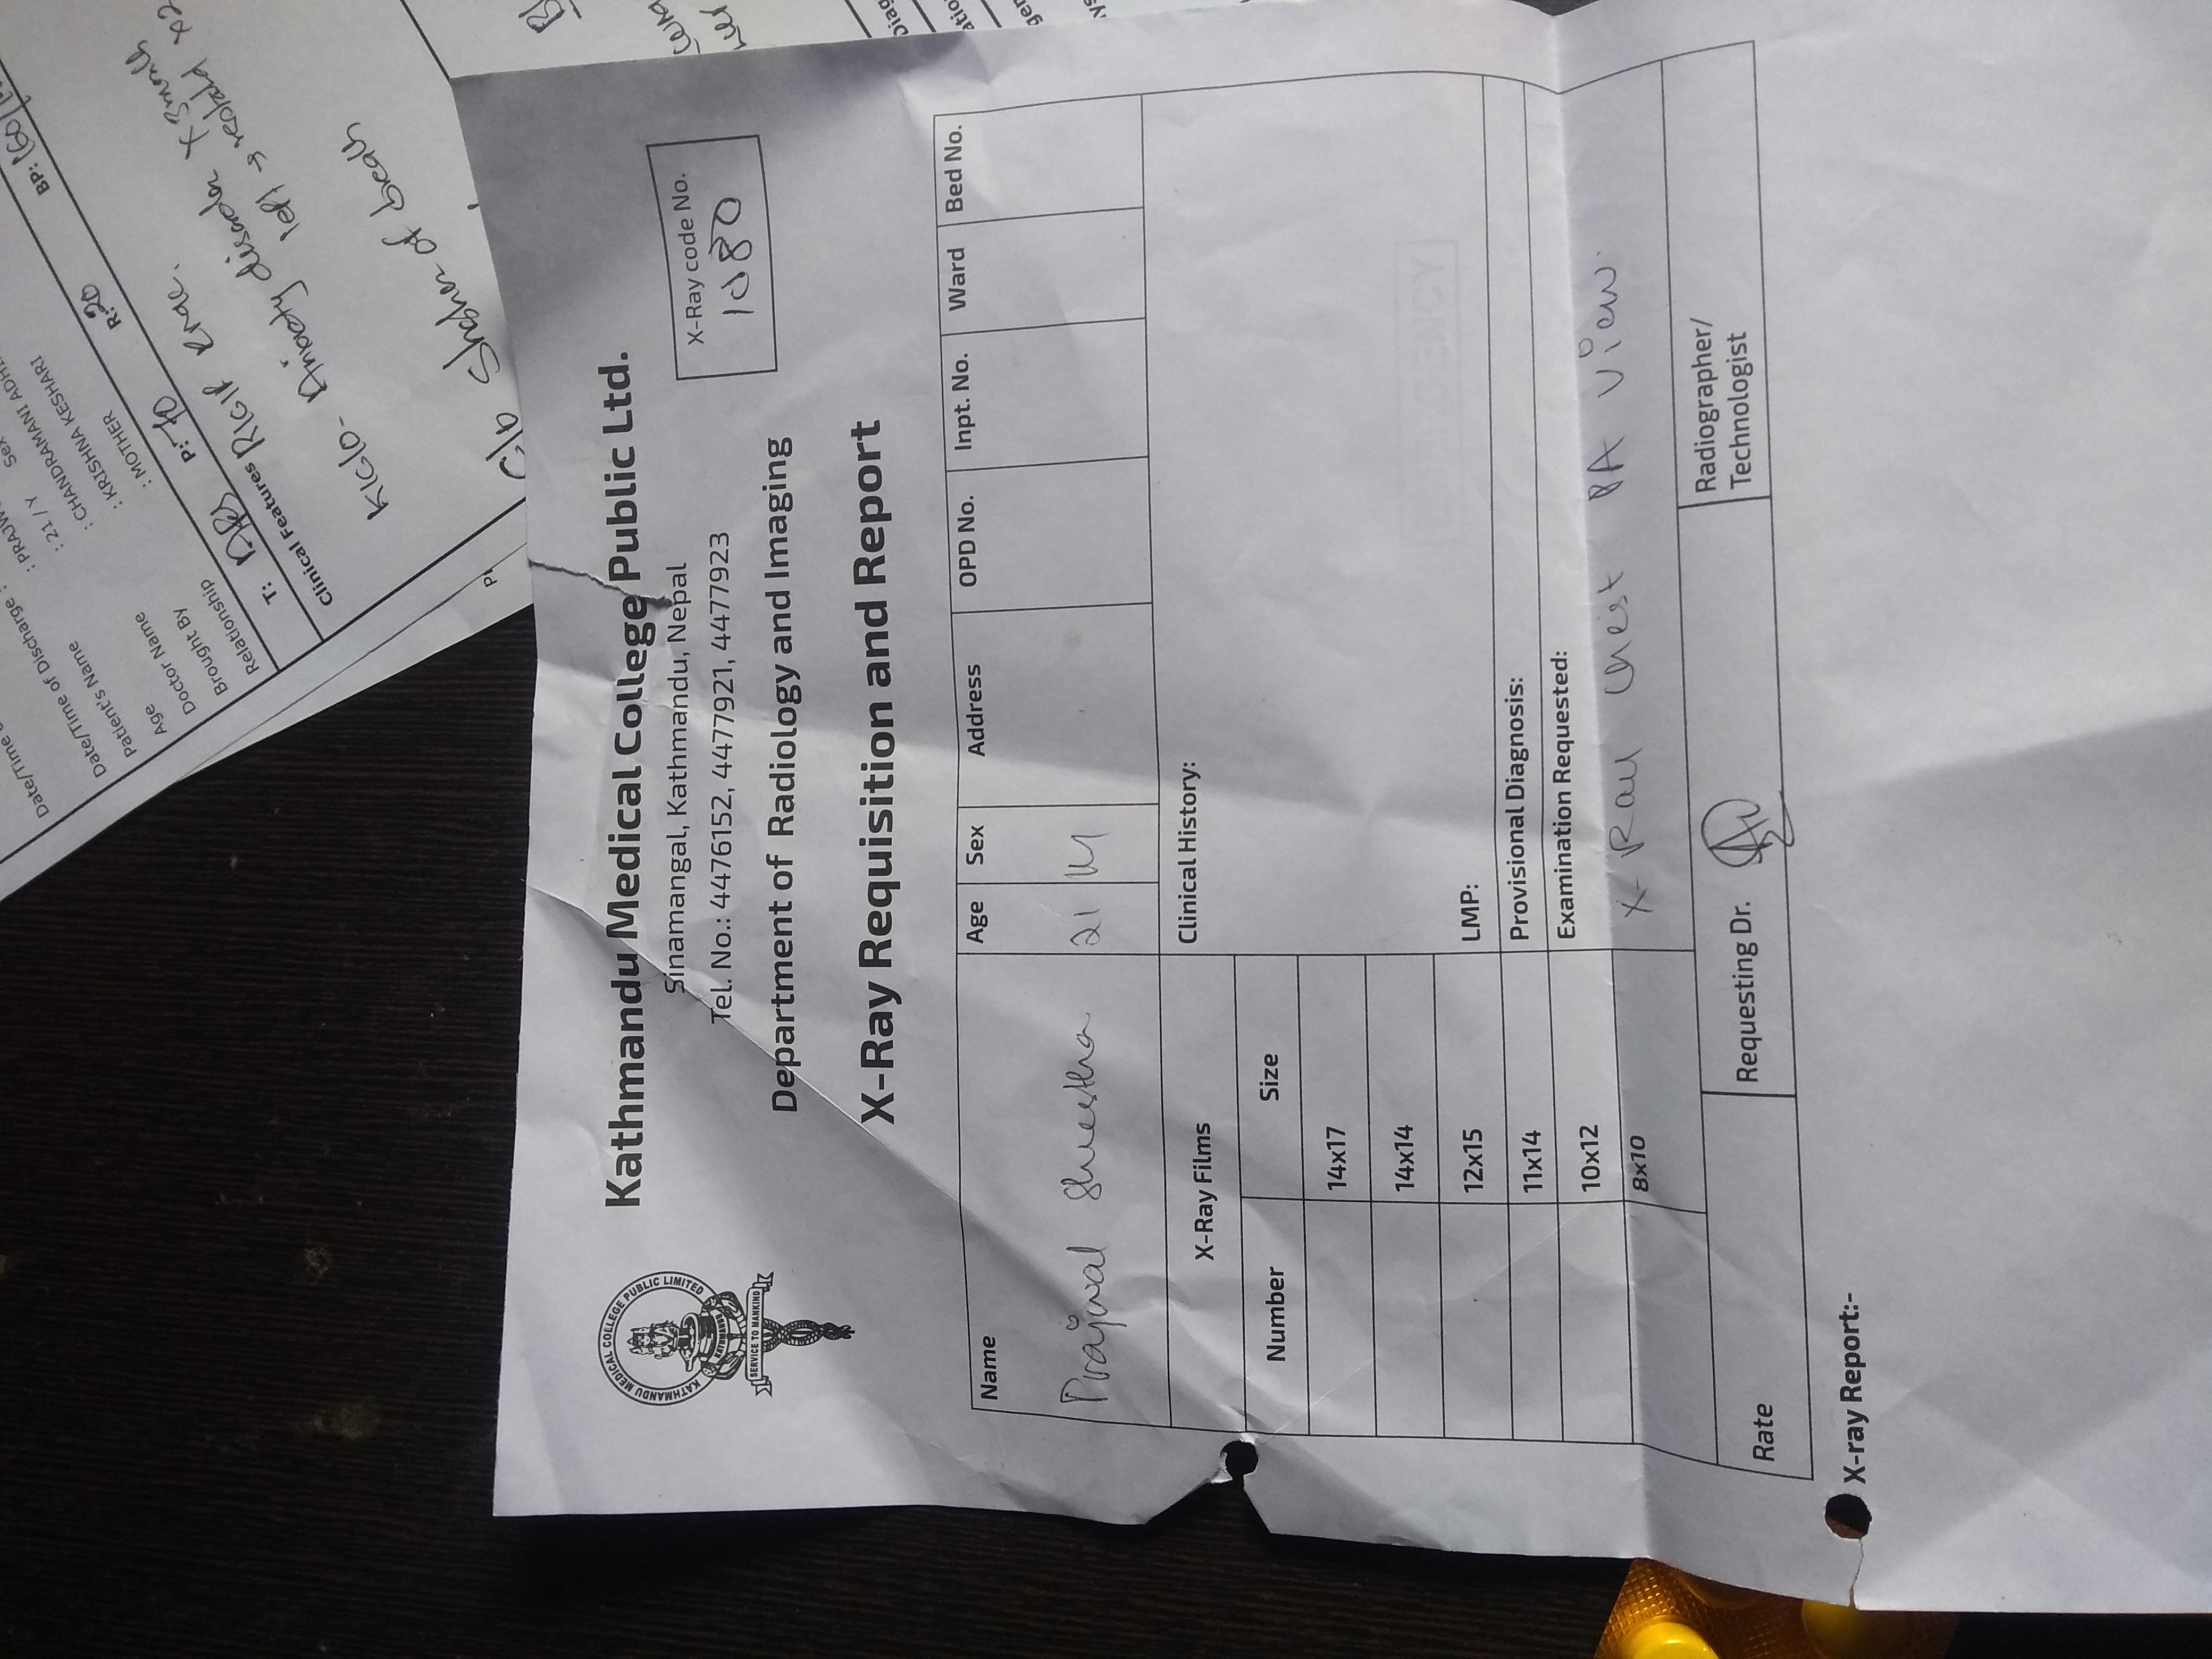 KATHMANDU MEDICAL COELEGE PUBLIC LIMITED
SERVICE TO MANKIND
Kathmandu Medical College Public Ltd.
Sinamangal, Kathmandu, Nepal
Tel. No.: 4476152, 4477921, 4477923
Department of Radiology and Imaging
X-Ray Requisition and Report
X-Ray code No.
Name Age Sex Address OPD No. Inpt. No. Ward Bed No.
Prajwal Shrestha 21 M
X-Ray Films
Clinical History:
Number Size
14x17
14x14
12x15
LMP:
11x14
Provisional Diagnosis:
10x12
Examination Requested:
8x10
X-Ray Chest PA view.
Rate
Requesting Dr.
Radiographer/
Technologist
X-ray Report:-
Date/Time of Discharge :
Patient's Name : PRAJW
Age : 21 / Y Sex
Doctor Name : CHANDRAMANI ADHI
Brought By : KRISHNA KESHARI
Relationship : MOTHER
T: P: 70 R: 20 BP: 160/
Clinical Features
Anxiety disorder x 3 month
left → x2
c/o Shortness of breath